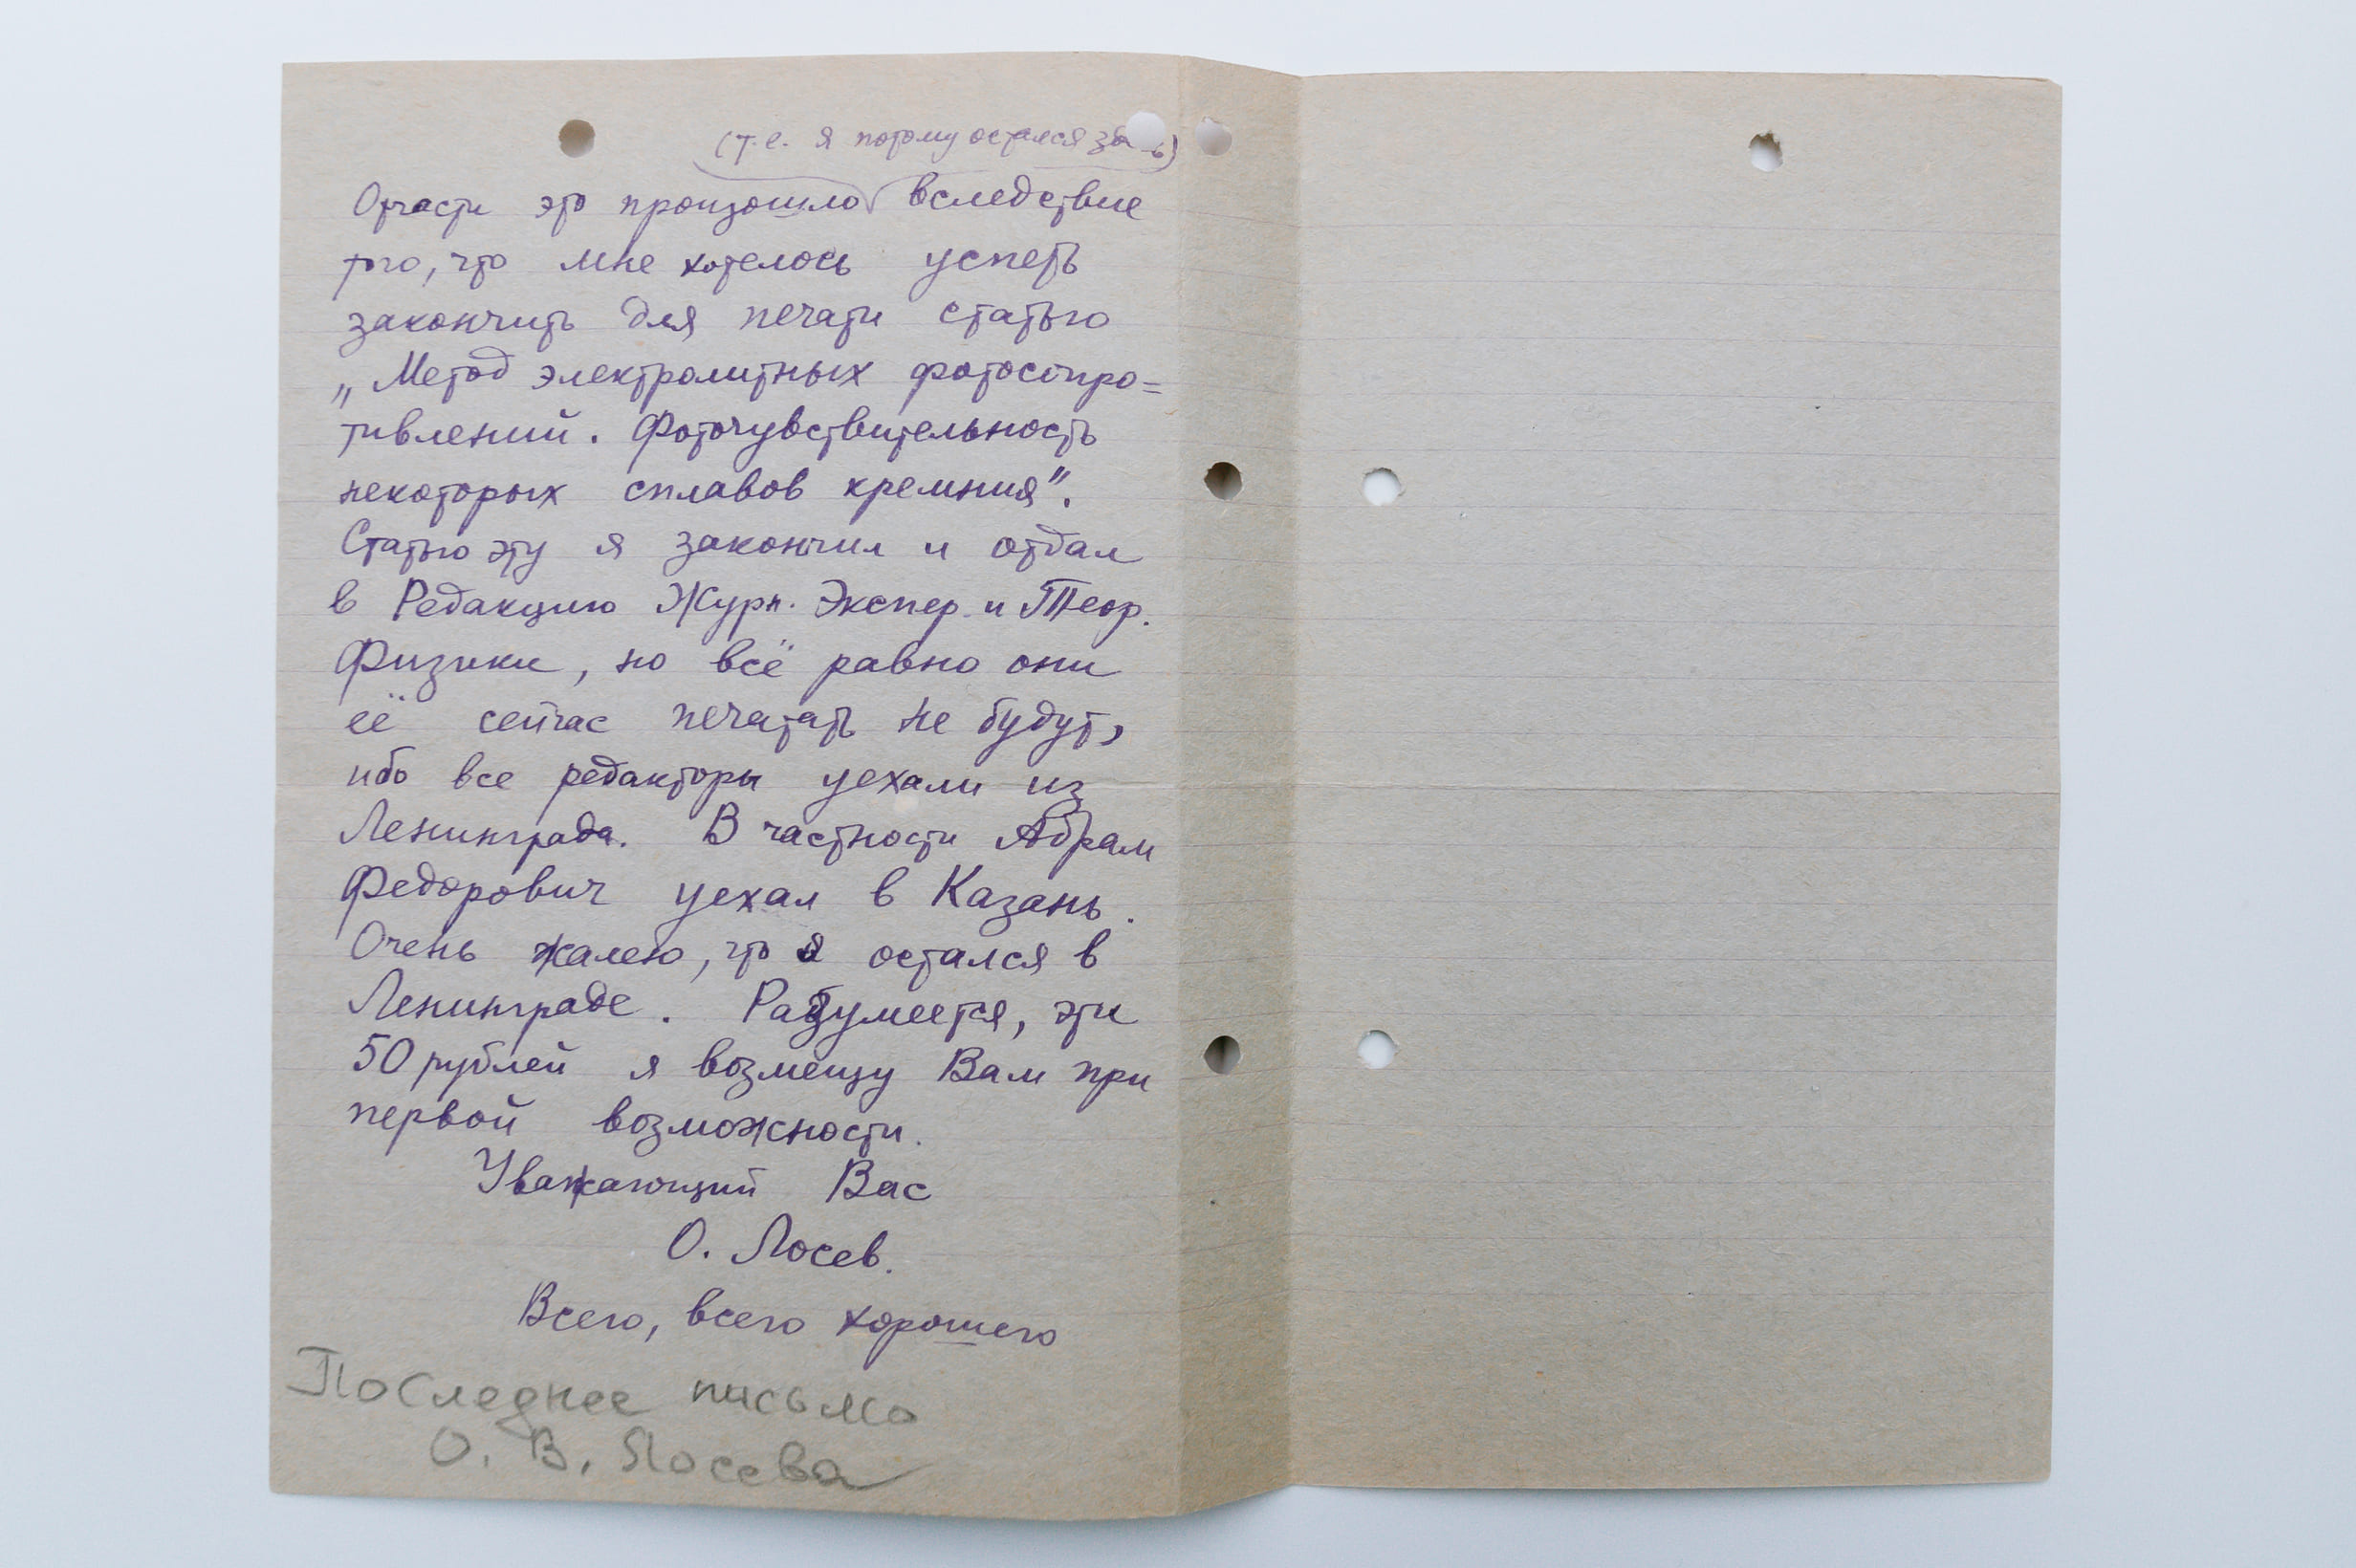 (т.е. я потому остался
Отчасти это произошло вследствие
того, что мне хотелось успеть
закончить для печати статью
„Метод электролитных фотосопро=
тивлений. Фоточувствительность
некоторых сплавов кремния".
Статью эту я закончил и отдал
в Редакцию Журн. Экспер. и Теор.
Физики, но всё равно они
её сейчас печатать не будут,
ибо все редакторы уехали из
Ленинграда. В частности Абрам
Федорович уехал в Казань.
Очень жалею, что я остался в
Ленинграде. Разумеется, эти
50 рублей я возмещу Вам при
первой возможности.
Уважающий Вас
О. Лосев.
Всего, всего хорошего
Последнее письмо
О. В. Лосева